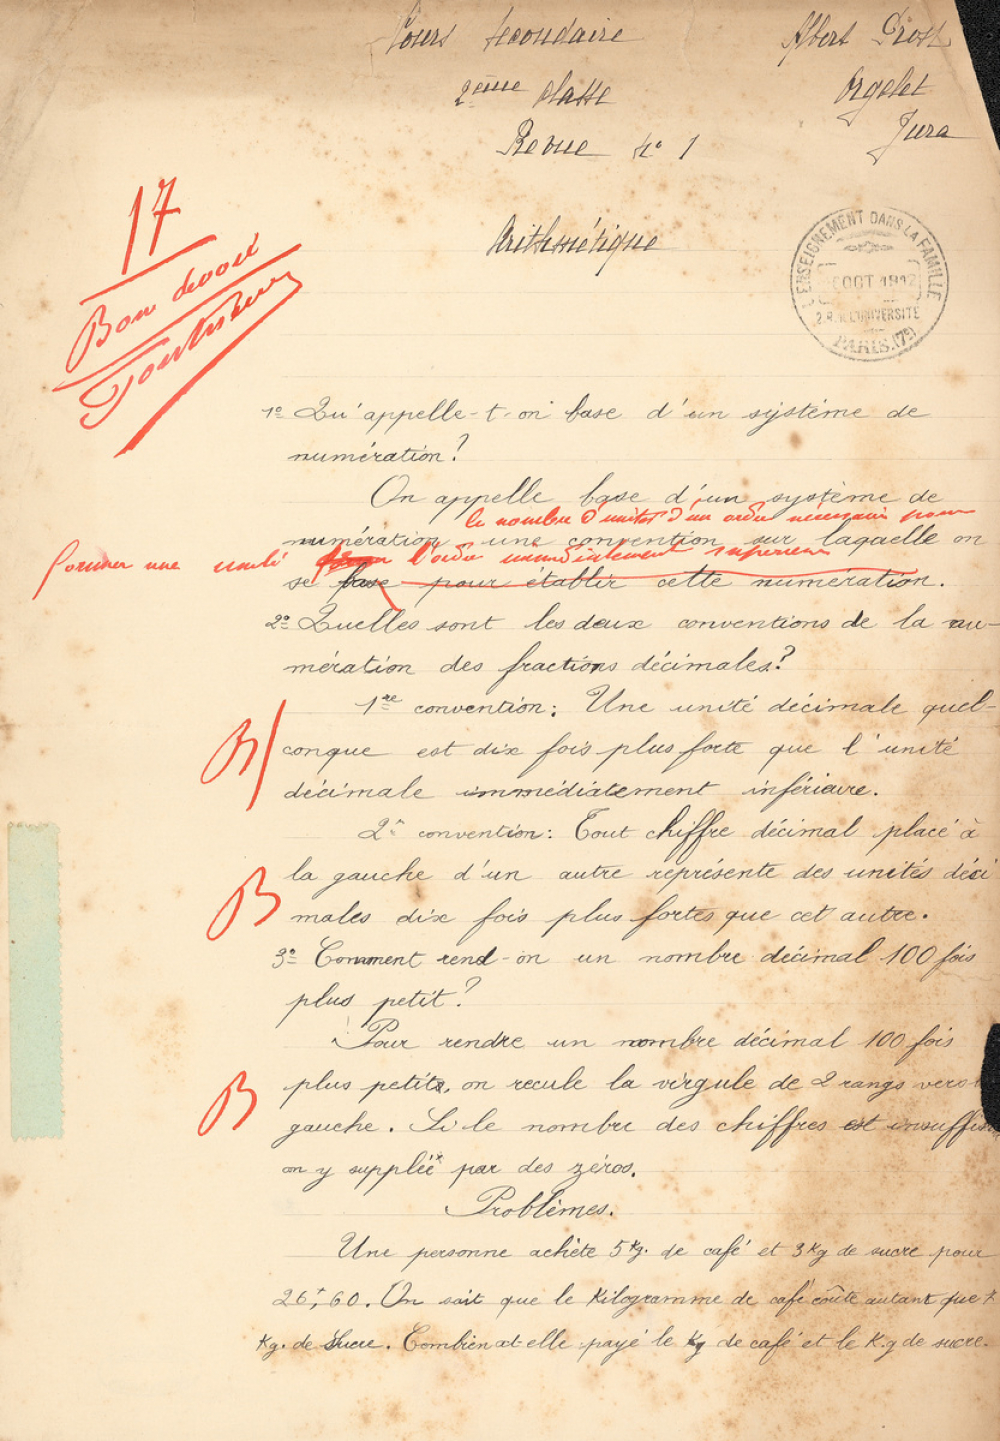 Cours Secondaire
Albert Prost
2ème classe
Orgelet
Revue No 1
Jura
17
Arithmétique
Bon devoir
L'ENSEIGNEMENT DANS LA FAMILLE
OCT 1912
2.R.DE L'UNIVERSITÉ
PARIS.(7e)
1º Qu'appelle-t-on base d'un système de
numération?
On appelle base d'un système de
le nombre d'unités d'un ordre nécessaire pour
numération une convention sur laquelle on
former une unité de l'ordre immédiatement supérieur
se base pour établir cette numération.
2º Quelles sont les deux conventions de la nu-
mération des fractions décimales?
1re convention: Une unité décimale quel-
B
conque est dix fois plus forte que l'unité
décimale immédiatement inférieure.
2e convention: Tout chiffre décimal placé à
la gauche d'un autre représente des unités déci
B
males dix fois plus fortes que cet autre.
3º Comment rend-on un nombre décimal 100 fois
plus petit?
Pour rendre un nombre décimal 100 fois
B
plus petit, on recule la virgule de 2 rangs vers
gauche. Si le nombre des chiffres est insuffi
on y supplée par des zéros.
Problèmes.
Une personne achète 5 Kg. de café et 3 Kg de sucre pour
26f,60. On sait que le Kilogramme de café coûte autant que
Kg. de Sucre. Combien a-t-elle payé le Kg de café et le K.g de sucre.